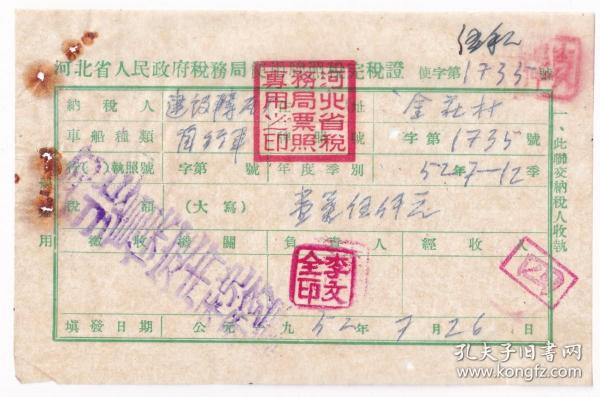 河北省人民政府稅務局使用牌照稅完稅證 使字第1735號
河北省稅務局票照專用之印
納稅人 住址 金莊村
車船種類 自行車 字第1735號
執照號 字第 號 年度季別 52年7—12季
稅額 (大寫) 壹萬伍仟元
徵收機關 負責人 經收人
李文全印
填發日期 公元一九52年7月26日
一、此聯交納稅人收執
孔夫子旧书网
www.kongfz.com